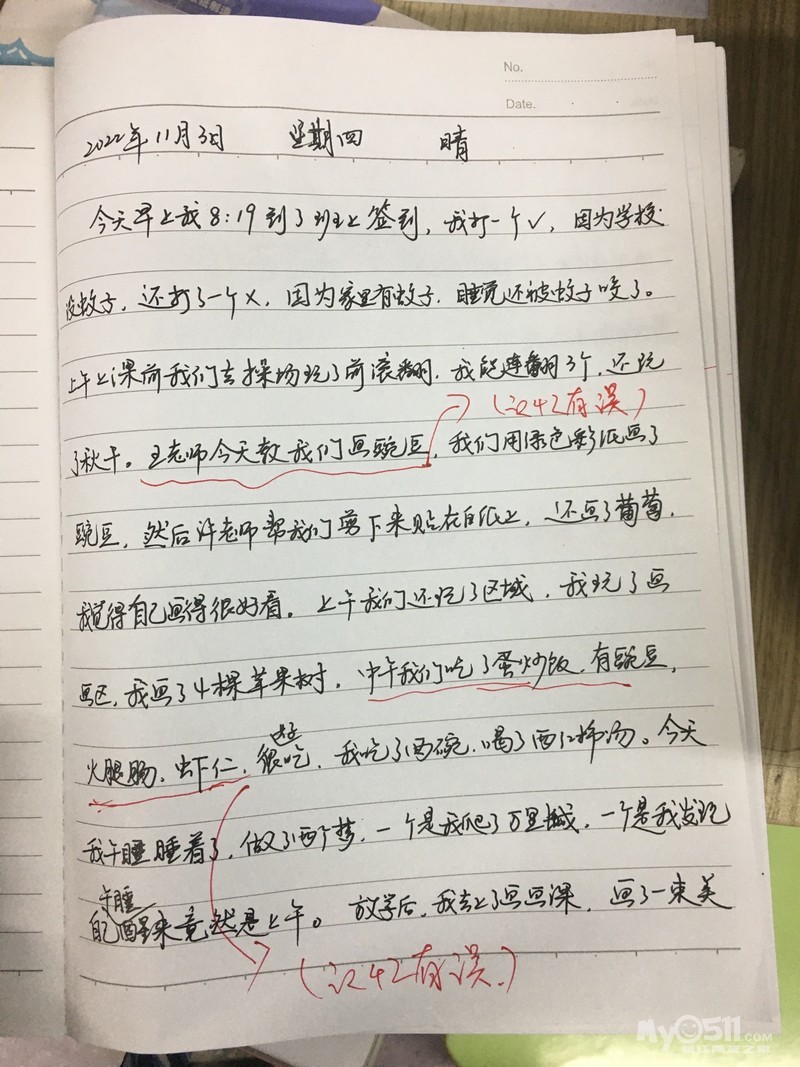 No.
Date.
2022年11月3日 星期四 晴
今天早上我8:19到了班上签到，我打一个✓，因为学校
没蚊子，还打了一个×，因为家里有蚊子，睡觉还被蚊子咬了。
上午上课前我们去操场玩了前滚翻，我能连翻3个，还玩
(记忆有误)
了秋千。王老师今天教我们画豌豆，我们用绿色彩纸画了
豌豆，然后许老师帮我们剪下来贴在白纸上，还画了葡萄，
我觉得自己画得很好看。上午我们还玩了区域，我玩了画
画区，我画了4棵苹果树，中午我们吃了蛋炒饭，有豌豆，
火腿肠，虾仁，很好吃，我吃了两碗，喝了西红柿汤。今天
我午睡睡着了，做了两个梦，一个是我爬了万里城，一个是我发现
自己午睡醒来竟然是上午。放学后，我去上了画画课，画了一束美
(记忆有误.)
My0511.COM